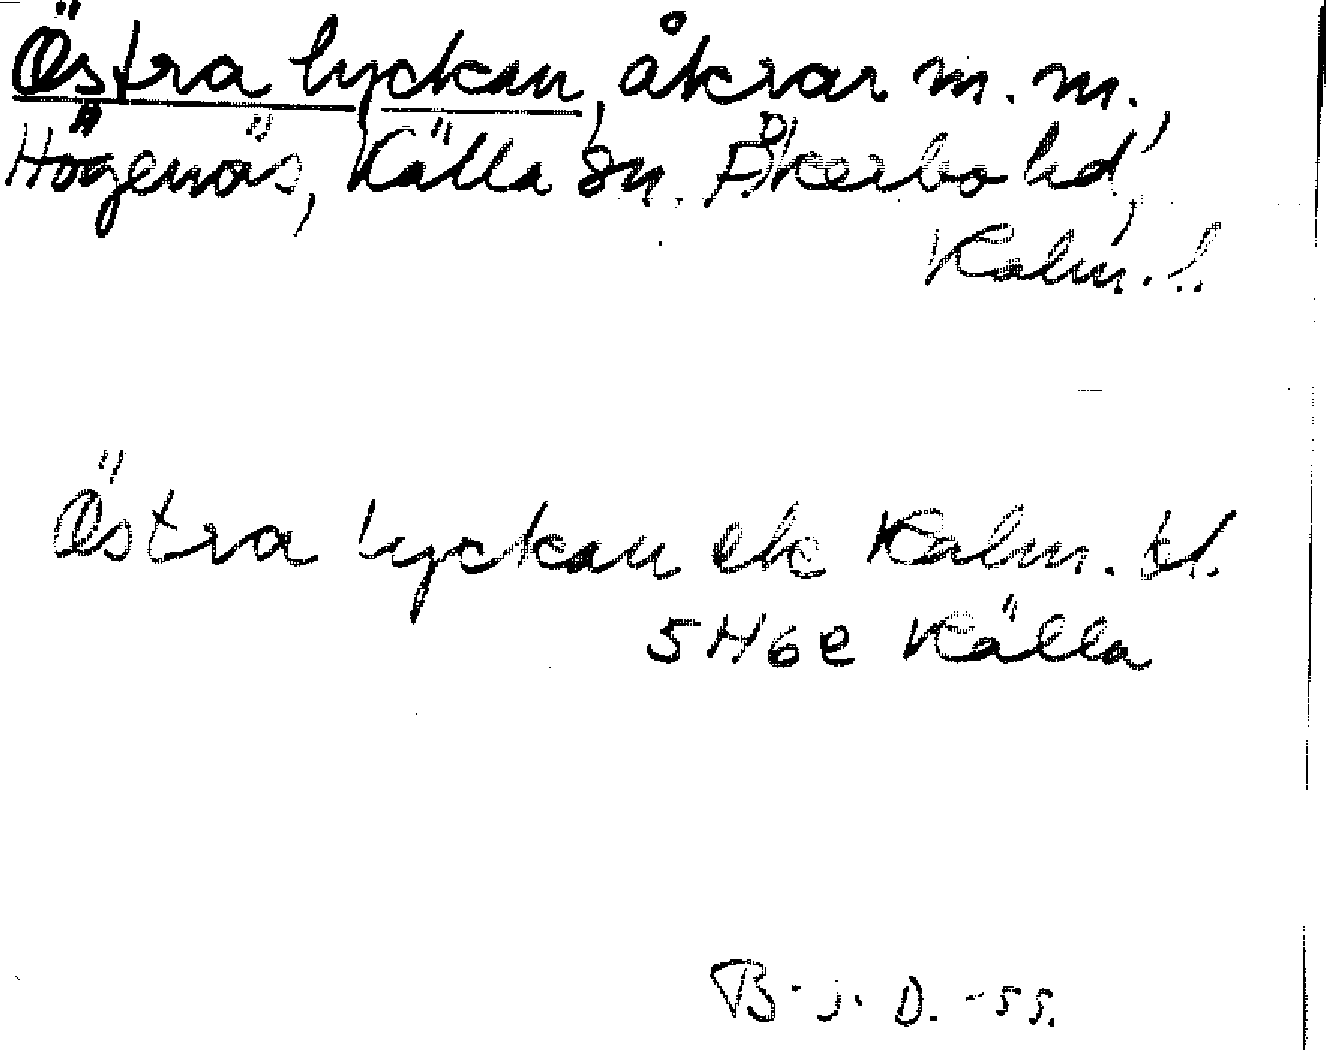 Östra lyckan, åkrar m.m.,
Högenäs, Källa sn. Åkerbo hd,
Kalm. l.
Östra lyckan ek Kalm. tl.
5H6e Källa
B. j. D. -55.